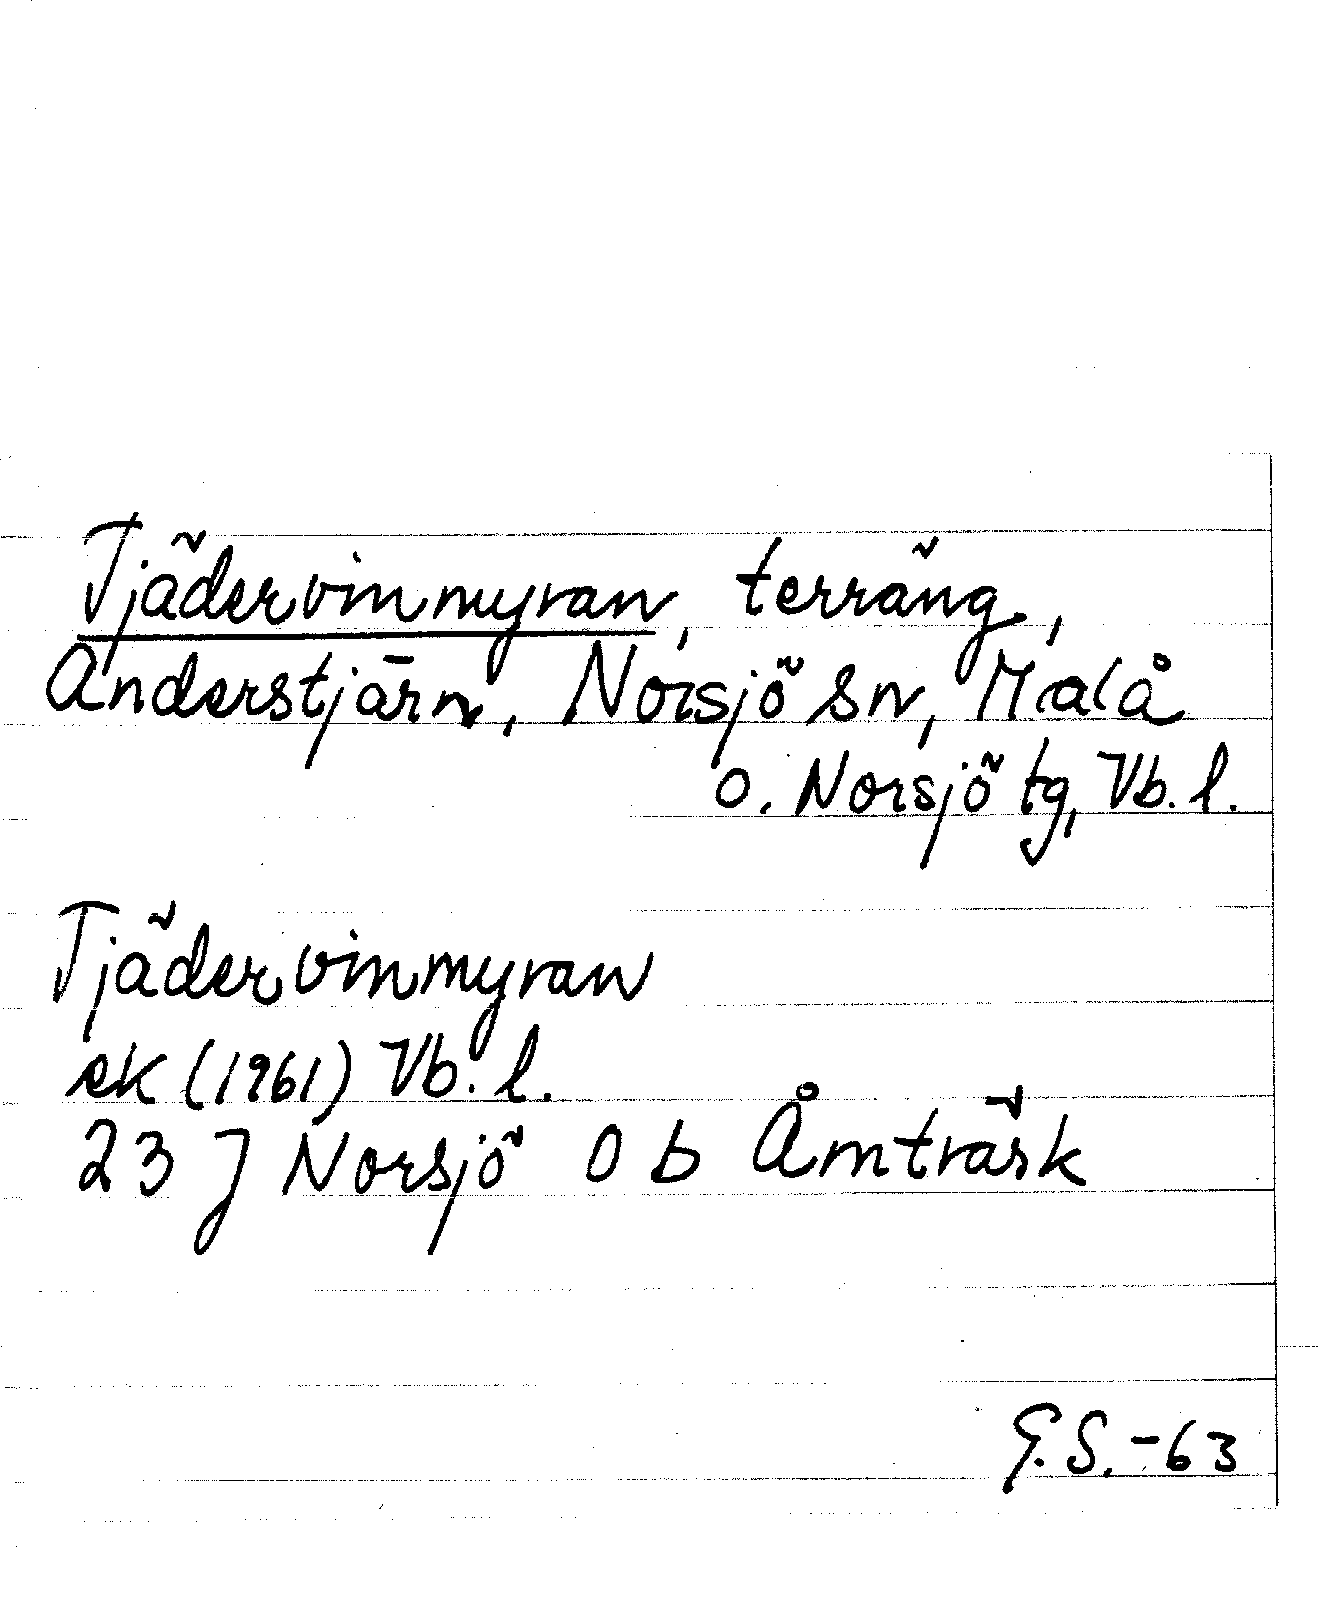 Tjädervinmyran, terräng,
Anderstjärn, Norsjö sn, Malå
o. Norsjö tg, Vb. l.
Tjädervinmyran
ek (1961) Vb. l.
23 J Norsjö 0 b Åmträsk
G.S. -63